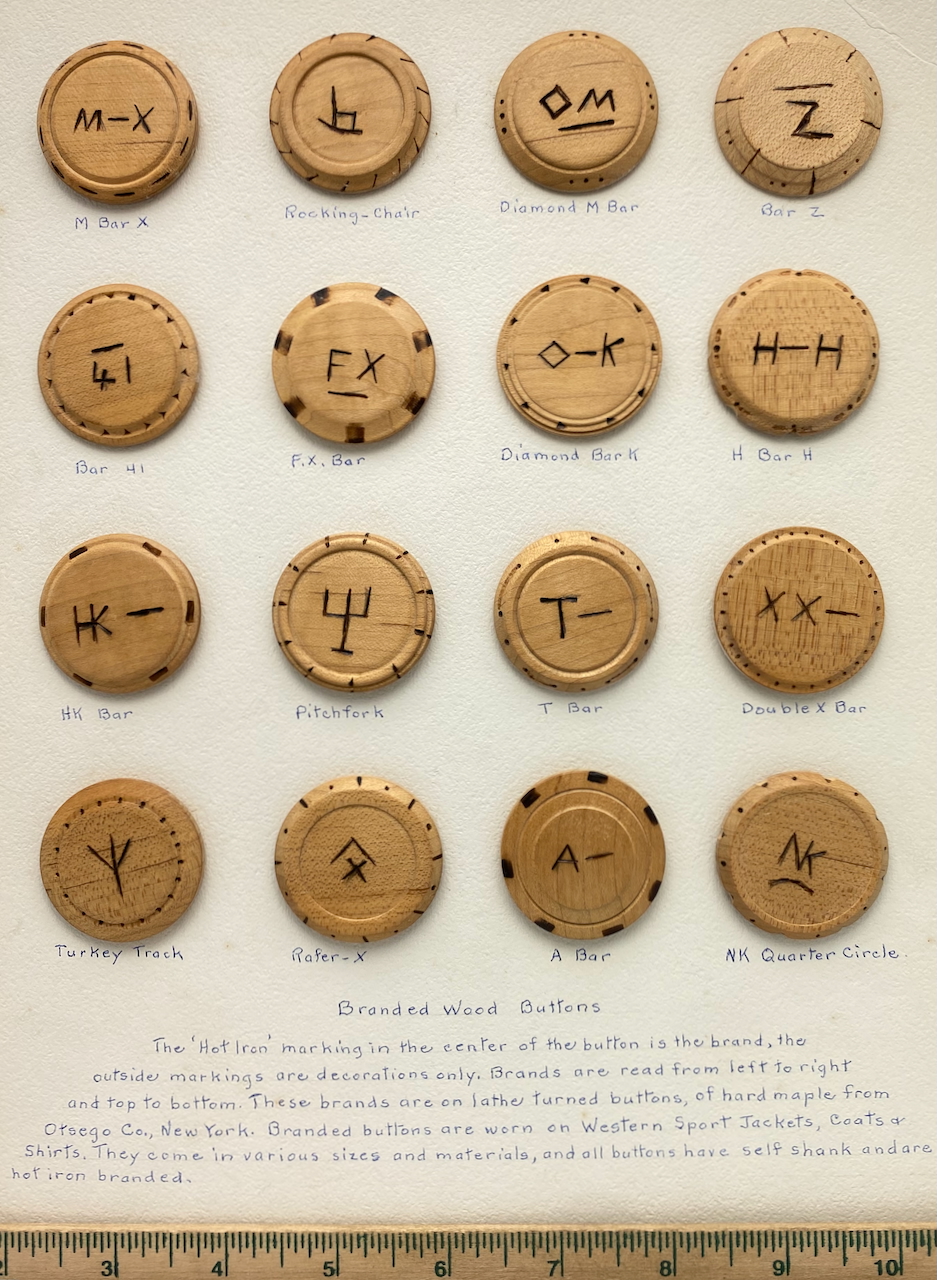 M-X
M Bar X
Rocking-Chair
M
Diamond M Bar
Z
Bar Z
41
Bar 41
FX
F.X. Bar
-K
Diamond Bar K
H-H
H Bar H
HK -
HK Bar
Pitchfork
T-
T Bar
XX-
Double X Bar
Turkey Track
X
Rafer-X
A-
A Bar
NK
NK Quarter Circle.
Branded Wood Buttons
The 'Hot Iron' marking in the center of the button is the brand, the
outside markings are decorations only. Brands are read from left to right
and top to bottom. These brands are on lathe turned buttons, of hard maple from
Otsego Co., New York. Branded buttons are worn on Western Sport Jackets, Coats &
Shirts. They come in various sizes and materials, and all buttons have self shank and are
hot iron branded.
2 3 4 5 6 7 8 9 10